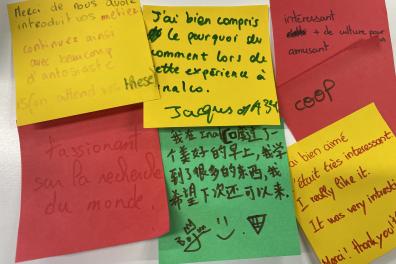 Merci de nous avoir
introduit vos métiers
continuez ainsi
avec beaucoup
d'antosiaste
on attend vos thèse
J'ai bien compris
le pourquoi du
comment lors de
cette expérience à
Inalco.
Jacques
intéressant
+ de culture pour
amusant
COOP
Passionant
sur la recherche
du monde.
我在Inalco度过了一
个美好的早上,我学
到了很多的东西,我
希望下次还可以来.
ai bien aimé
'était très interessant
I really like it.
It was very interesti
Merci! thank you!